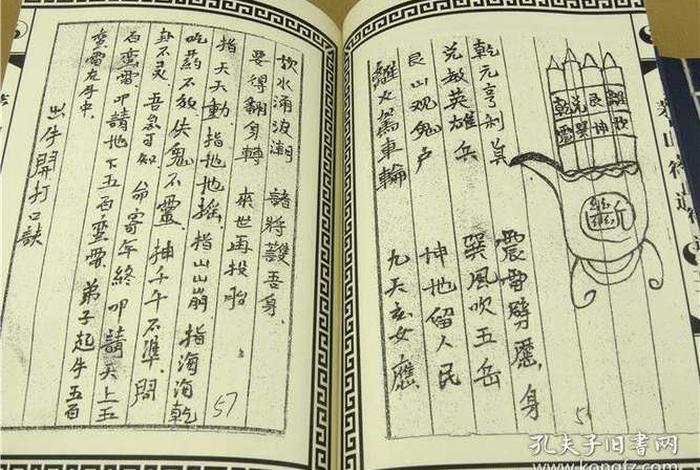 乾兑艮離
震巽坤坎
乾元亨利貞 震雷劈靂身
兑教英雄兵 巽風吹五岳
艮山观鬼户 坤地留人民
離火駕車輪 九天玄女應
5
坎水涌波潮 諸将護吾身、
要得翻身轉 來世再投胎
指天天動、指地地摇、指山山崩指海海乾
吃药不放失鬼不靈、抻千午不準、問
卦不灵、吾急可知、命寄年終叩請天上五
百蛮雷、叩請地下五百蛮雷、弟子起牛五百
蛮雷在牛中、
出牛開打口訣
57
茅山符
孔夫子旧書网
www.kongfz.com